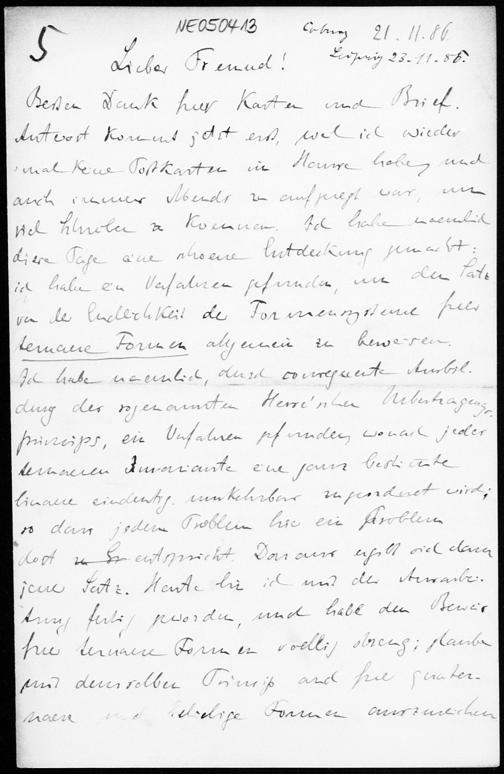 5 NE050413 Coburg 21.11.86
Leipzig 23.11.86.
Lieber Freund!
Besten Dank fuer Karten und Brief.
Antwort kommt jetzt erst, weil ich wieder
mal keine Postkarten im Hause habe, und
auch immer Abends zu aufgeregt war, um
viel schreiben zu koennen. Ich habe naemlich
diese Tage eine schoene Entdeckung gemacht:
ich habe ein Verfahren gefunden, um den Satz
von der Endlichkeit der Formensysteme fuer
ternaere Formen allgemein zu beweisen.
Ich habe naemlich, durch consequente Ausbil-
dung des sogenannten Uebertragungs-
prinzips, ein Verfahren gefunden, wonach jeder
ternaeren Invariante eine ganz bestimmte
binaere eindeutig umkehrbar zugeordnet wird;
so dass jedem Problem hie ein Problem
dort entspricht. Daraus ergibt sich dann
jener Satz. Heute bin ich mit der Ausarbei-
tung fertig geworden, und habe den Beweis
fuer ternaere Formen voellig streng; glaube
mit demselben Prinzip auch fuer quater-
naere und beliebige Formen auszureichen